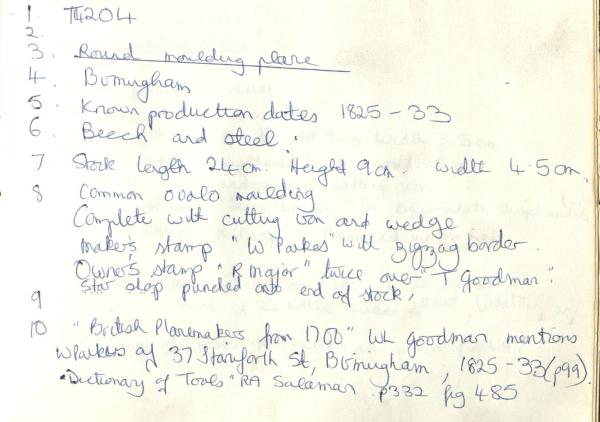 1. TT4204
2.
3. Round moulding plane
4. Birmingham
5. Known production dates 1825 - 33
6. Beech and steel.
7 Stock length 24cm. Height 9cm. width 4.5cm.
8 Common ovolo moulding
Complete with cutting iron and wedge
maker's stamp "W Parkes" with zigzag border.
Owner's stamp "R Major" twice over "T Goodman".
Star shap punched onto end of stock,
9
10 "British Planemakers from 1700" WL Goodman mentions
W Parkes of 37 Staniforth St, Birmingham, 1825-33 (p99).
"Dictionary of Tools" RA Salaman p332 fig 485